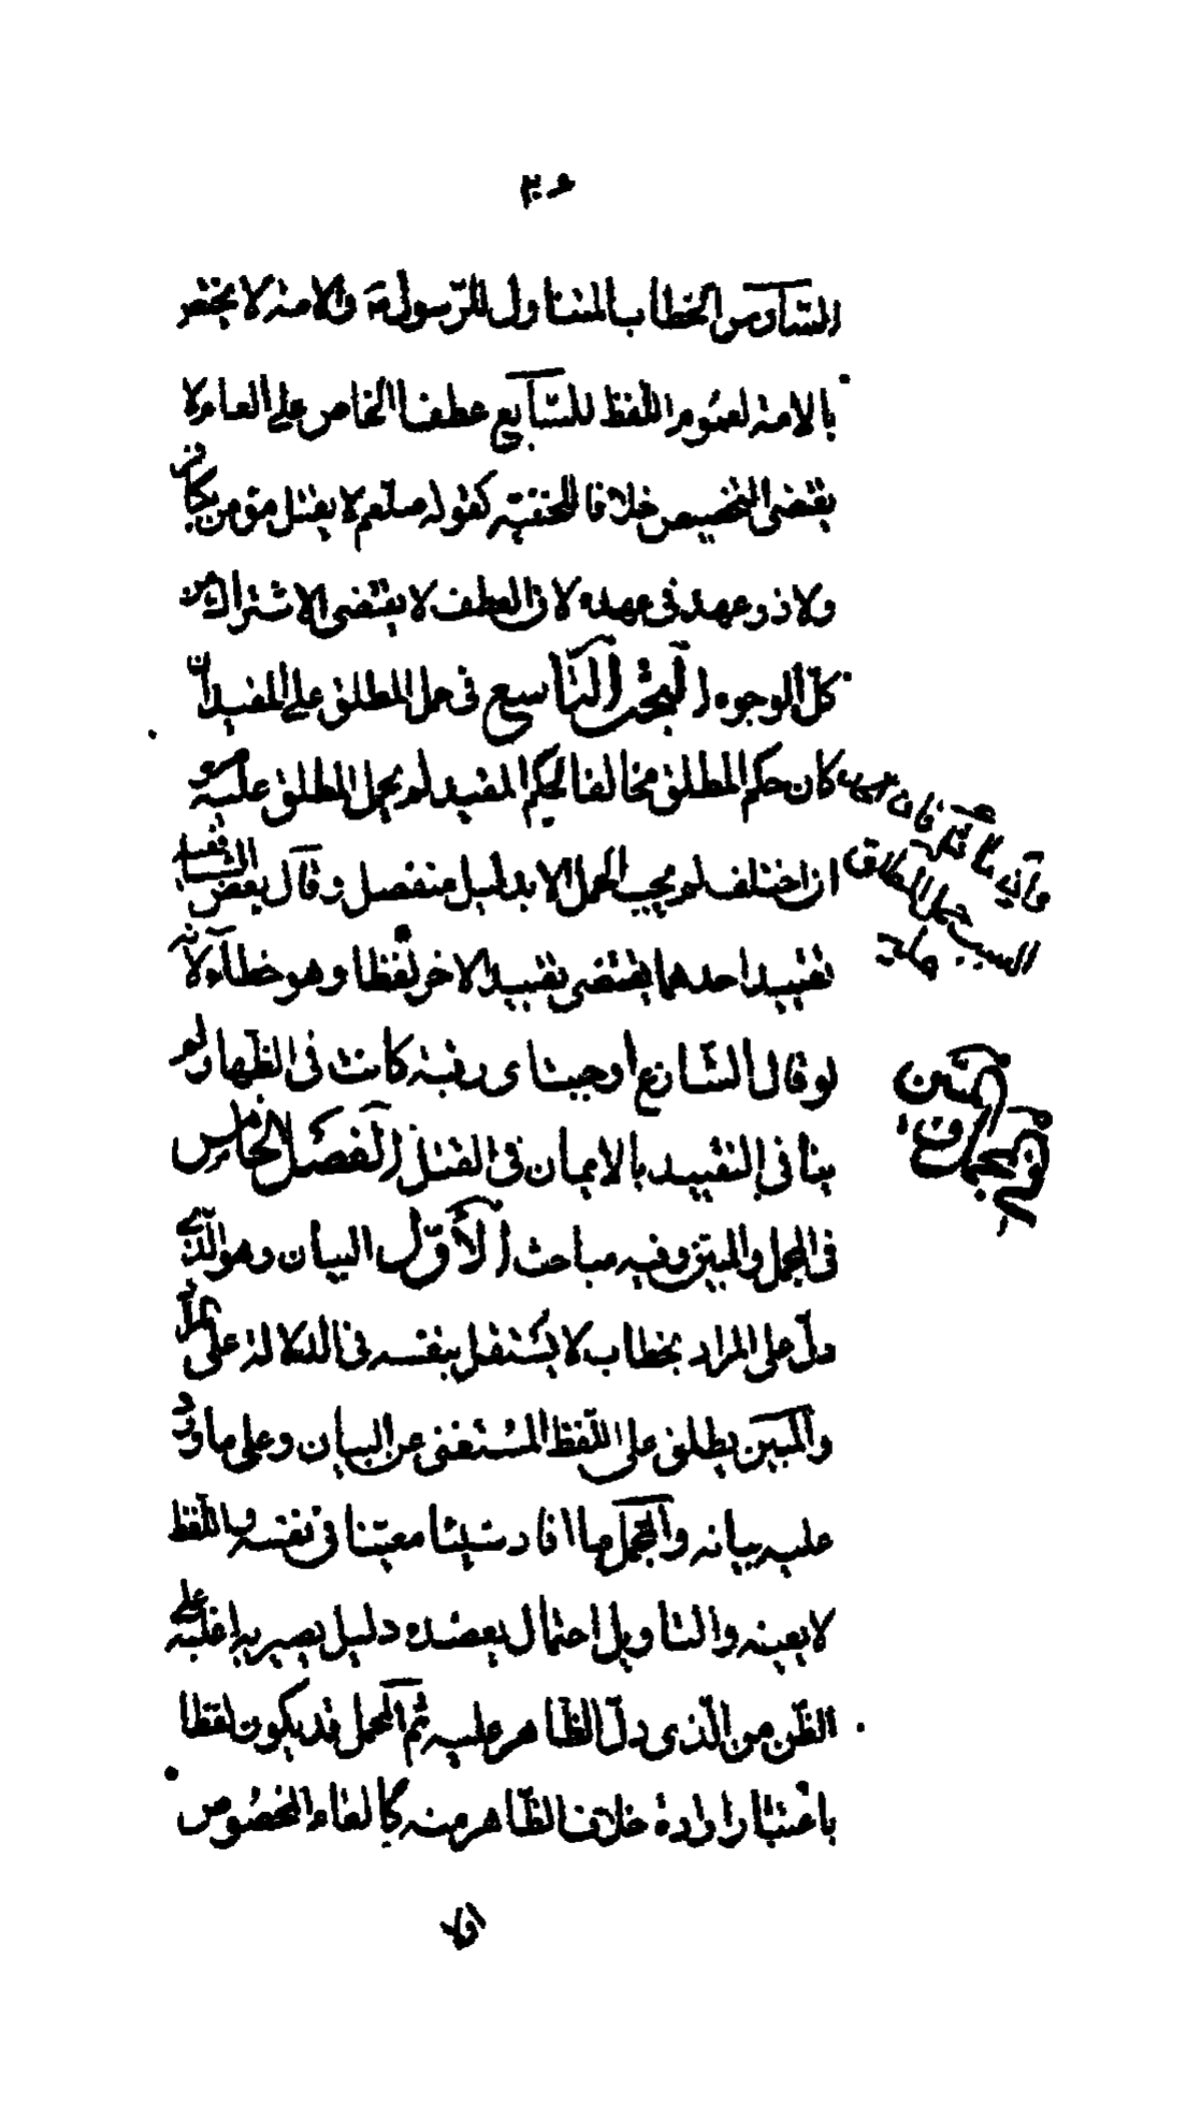 السادس الخطاب المتناول للرسول ص والامة لا يختص
بالامة لعموم اللفظ السابع عطف الخاص على العام لا
يقتضى التخصيص خلافا للحنفية كقوله صلعم لا يقتل مؤمن بكافر
ولا ذو عهد فى عهده لان العطف لا يقتضى الاشتراك من
كل الوجوه البحث التاسع فى حمل المطلق على المقيد ان
كان حكم المطلق مخالفا لحكم المقيد لم يحمل المطلق عليه
وان تماثلا فان اتحد
السبب حمل المطلق
عليه
ان اختلف لم يجب الحمل الا بدليل منفصل وقال بعض الشافعية
تقييد احدهما يقتضى تقييد الاخر لفظا وهو خطاء لانه
لو قال الشارع اوجبت اى رقبة كانت فى الظهار لم
ينافى التقييد بالايمان فى القتل الفصل الخامس
فى المجمل والمبين وفيه مباحث الاول البيان وهو الذى
دل على المراد بخطاب لا يستقل بنفسه فى الدلالة على المراد
والمبين يطلق على اللفظ المستغنى عن البيان وعلى ما ورد
عليه بيانه والمجمل ما افاد شيئا معينا فى نفسه واللفظ
لا يعينه والتاويل احتمال يعضده دليل يصير به اغلب على
الظن من الذى دل الظاهر عليه ثم المجمل قد يكون لفظا
باعتبار ارادة خلاف الظاهر منه كالعام المخصوص